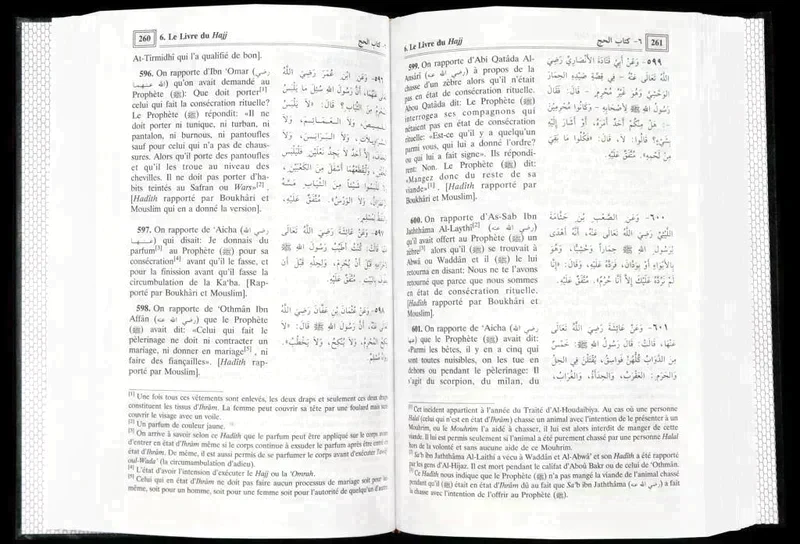 260
6. Le Livre du Hajj
٦- كتاب الحج
At-Tirmidhi qui l'a qualifié de bon].
596. On rapporte d'Ibn 'Omar (رضي
الله عنهما) qu'on avait demandé au
Prophète (ﷺ): Que doit porter[1]
celui qui fait la consécration rituelle?
Le Prophète (ﷺ) répondit: «Il ne
doit porter ni tunique, ni turban, ni
pantalon, ni burnous, ni pantoufles
sauf pour celui qui n'a pas de chaus-
sures. Alors qu'il porte des pantoufles
et qu'il les troue au niveau des
chevilles. Il ne doit pas porter d'ha-
bits teintés au Safran ou Wars»[2].
[Hadîth rapporté par Boukhâri et
Mouslim qui en a donné la version].
597. On rapporte de 'Aicha (رضي الله
عنها) qui disait: Je donnais du
parfum[3] au Prophète (ﷺ) pour sa
consécration[4] avant qu'il le fasse, et
pour la finission avant qu'il fasse la
circumbulation de la Ka'ba. [Rap-
porté par Boukhâri et Mouslim].
598. On rapporte de 'Othmân Ibn
Affân (رضي الله عنه) que le Prophète
(ﷺ) avait dit: «Celui qui fait le
pèlerinage ne doit ni contracter un
mariage, ni donner en mariage[5], ni
faire des fiançailles». [Hadîth rap-
porté par Mouslim].
٥٩٦- وَعَنِ ابْنِ عُمَرَ رَضِيَ اللَّهُ
٥٩٧- وَعَنْ عَائِشَةَ رَضِيَ اللَّهُ تَعَالَى
٥٩٨- وَعَنْ عُثْمَانَ بْنِ عَفَّانَ رَضِيَ اللَّهُ
[1] Une fois tous ces vêtements sont enlevés, les deux draps et seulement ces deux draps
constituent les tissus d'Ihrâm. La femme peut couvrir sa tête par une foulard mais sans
couvrir le visage avec un voile.
[2] Un parfum de couleur jaune.
[3] On arrive à savoir selon ce Hadîth que le parfum peut être appliqué sur le corps avant
d'entrer en état d'Ihrâm même si le corps continue à exsuder de parfum après être entré en
état d'Ihrâm. De même, il est aussi permis de se parfumer le corps avant d'exécuter Tawâf
oul-Wada' (la circumambulation d'adieu).
[4] L'état d'avoir l'intension d'exécuter le Hajj ou la 'Omrah.
[5] Celui qui est en état d'Ihrâm ne doit pas faire aucun processus de mariage soit pour lui-
même, soit pour un homme, soit pour une femme soit pour l'autorité de quelqu'un d'autre.
6. Le Livre du Hajj
٦- كتاب الحج
261
599. On rapporte d'Abi Qatâda Al-
Ansâri (رضي الله عنه) à propos de la
chasse d'un zèbre alors qu'il n'était
pas en état de consécration rituelle.
Abou Qatâda dit: Le Prophète (ﷺ)
interrogea ses compagnons qui
n'étaient pas en état de consécration
rituelle: «Est-ce qu'il y a quelqu'un
parmi vous, qui lui a donné l'ordre?
ou qui lui a fait signe». Ils répondi-
rent: Non. Le Prophète (ﷺ) dit:
«Mangez donc du reste de sa
viande»[1]. [Hadîth rapporté par
Boukhâri et Mouslim].
600. On rapporte d'As-Sab Ibn
Jaththâma Al-Laythi[2] (رضي الله عنه)
qu'il avait offert au Prophète (ﷺ) un
zèbre[3] alors qu'il (ﷺ) se trouvait à
Abwâ ou Waddân et il (ﷺ) le lui
retourna en disant: Nous ne te l'avons
retourné que parce que nous sommes
en état de consécration rituelle.
[Hadîth rapporté par Boukhâri et
Mouslim].
601. On rapporte de 'Aicha (رضي الله
عنها) que le Prophète (ﷺ) avait dit:
«Parmi les bêtes, il y en a cinq qui
sont toutes nuisibles, on les tue en
dehors ou pendant le pèlerinage: Il
s'agit du scorpion, du milan, du
٥٩٩- وَعَنْ أَبِي قَتَادَةَ الْأَنْصَارِيِّ رَضِيَ
اللَّهُ تَعَالَى عَنْهُ - فِي قِصَّةِ صَيْدِهِ الْحِمَارَ
الْوَحْشِيَّ وَهُوَ غَيْرُ مُحْرِمٍ - قَالَ: فَقَالَ
رَسُولُ اللَّهِ ﷺ لِأَصْحَابِهِ - وَكَانُوا مُحْرِمِينَ
-: هَلْ مِنْكُمْ أَحَدٌ أَمَرَهُ، أَوْ أَشَارَ إِلَيْهِ
بِشَيْءٍ؟ قَالُوا: لَا. قَالَ: «فَكُلُوا مَا بَقِيَ
مِنْ لَحْمِهِ». مُتَّفَقٌ عَلَيْهِ.
٦٠٠- وَعَنِ الصَّعْبِ بْنِ جَثَّامَةَ
اللَّيْثِيِّ رَضِيَ اللَّهُ تَعَالَى عَنْهُ، أَنَّهُ أَهْدَى
لِرَسُولِ اللَّهِ ﷺ حِمَاراً وَحْشِيّاً، وَهُوَ
بِالْأَبْوَاءِ أَوْ بِوَدَّانَ، فَرَدَّهُ عَلَيْهِ، وَقَالَ: «إِنَّا
لَمْ نَرُدَّهُ عَلَيْكَ إِلَّا أَنَّا حُرُمٌ». مُتَّفَقٌ عَلَيْهِ.
٦٠١- وَعَنْ عَائِشَةَ رَضِيَ اللَّهُ تَعَالَى
عَنْهَا، قَالَتْ: قَالَ رَسُولُ اللَّهِ ﷺ: خَمْسٌ
مِنَ الدَّوَابِّ كُلُّهُنَّ فَوَاسِقُ، يُقْتَلْنَ فِي الْحِلِّ
وَالْحَرَمِ: الْعَقْرَبُ، وَالْحِدَأَةُ، وَالْغُرَابُ،
[1] Cet incident appartient à l'année du Traité d'Al-Houdaibiya. Au cas où une personne
Halal (celui qui n'est en état d'Ihrâm) chasse un animal avec l'intention de le présenter à un
Mouhrim, ou le Mouhrim l'a aidé à chasser, il lui est alors interdit de manger de cette
viande. Il lui est permis seulement si l'animal a été purement chassé par une personne Halal
hors de la volonté et sans aucune aide de ce Mouhrim.
[2] Sa'b ibn Jaththâma Al-Laithi a vécu à Waddân et Al-Abwâ' et son Hadîth a été rapporté
par les gens d'Al-Hijaz. Il est mort pendant le califat d'Aboû Bakr ou de celui de 'Othmân.
[3] Ce Hadîth nous indique que le Prophète (ﷺ) n'a pas mangé la viande de l'animal chassé
pendant qu'il (ﷺ) était en état d'Ihrâm dû au fait que Sa'b ibn Jaththâma (رضي الله عنه) a fait
la chasse avec l'intention de l'offrir au Prophète (ﷺ).